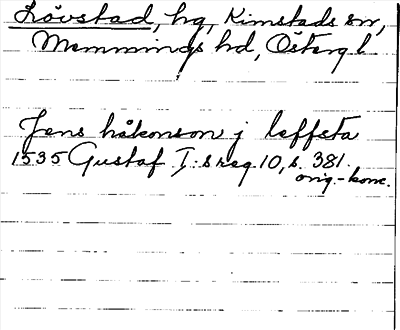 Lövstad, hg, Kimstads sn,
Memmings hd, Östergl
Jens håkonson j leffsta
1535 Gustaf I:s reg 10, s. 381.
orig.-konc.